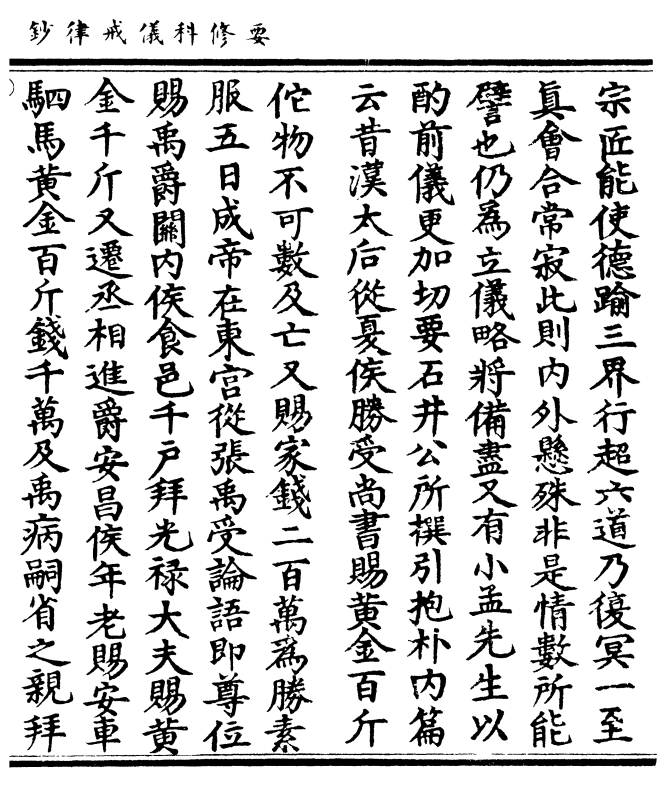 要修科儀戒律鈔
宗匠能使德踰三界行超六道乃復冥一至
真會合常寂此則內外懸殊非是情數所能
譬也仍為立儀略將備盡又有小孟先生以
酌前儀更加切要石井公所撰引抱朴內篇
云昔漢太后從夏侯勝受尚書賜黃金百斤
佗物不可數及亡又賜家錢二百萬為勝素
服五日成帝在東宮從張禹受論語即尊位
賜禹爵關內侯食邑千戶拜光祿大夫賜黃
金千斤又遷丞相進爵安昌侯年老賜安車
駟馬黃金百斤錢千萬及禹病嗣省之親拜